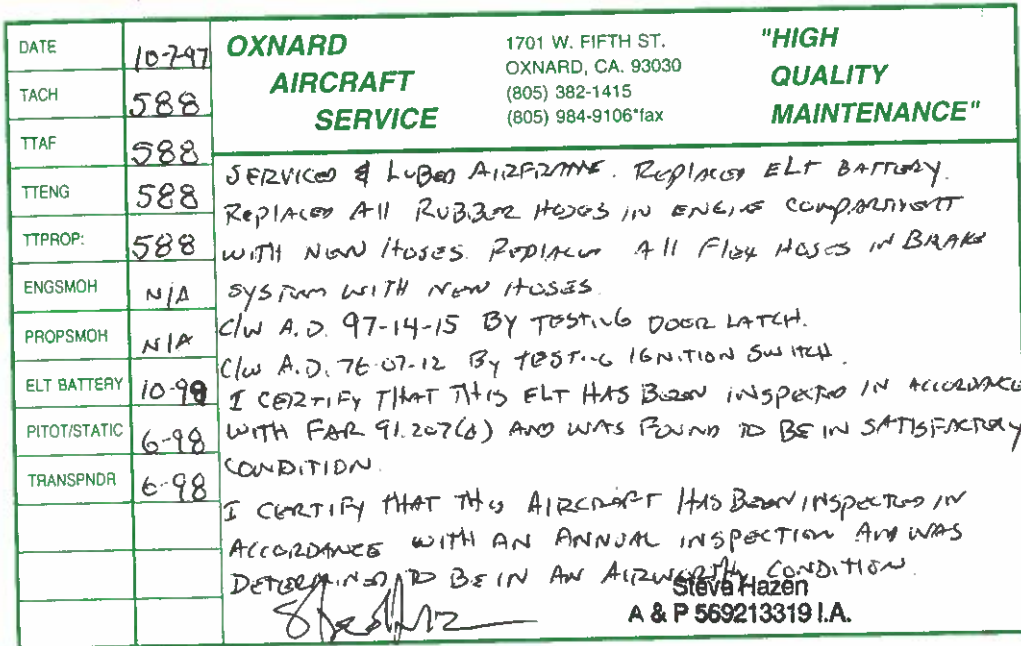 DATE 10-7-97
TACH 588
TTAF 588
TTENG 588
TTPROP: 588
ENGSMOH N/A
PROPSMOH N/A
ELT BATTERY 10-98
PITOT/STATIC 6-98
TRANSPNDR 6-98
OXNARD
AIRCRAFT
SERVICE
1701 W. FIFTH ST.
OXNARD, CA. 93030
(805) 382-1415
(805) 984-9106*fax
"HIGH
QUALITY
MAINTENANCE"
SERVICED & LUBED AIRFRAME. REPLACED ELT BATTERY.
REPLACED All RUBBER HOSES IN ENGINE COMPARTMENT
WITH NEW HOSES. REPLACED All Flex HOSES IN BRAKE
SYSTEM WITH NEW HOSES.
C/W A.D. 97-14-15 BY TESTING DOOR LATCH.
C/W A.D. 76-07-12 By TESTING IGNITION SWITCH.
I CERTIFY THAT THIS ELT HAS BEEN INSPECTED IN ACCORDANCE
WITH FAR 91.207(d) AND WAS FOUND TO BE IN SATISFACTORY
CONDITION.
I CERTIFY THAT THIS AIRCRAFT HAS BEEN INSPECTED IN
ACCORDANCE WITH AN ANNUAL INSPECTION AND WAS
DETERMINED TO BE IN AN AIRWORTHY CONDITION.
Steve Hazen
A & P 569213319 I.A.